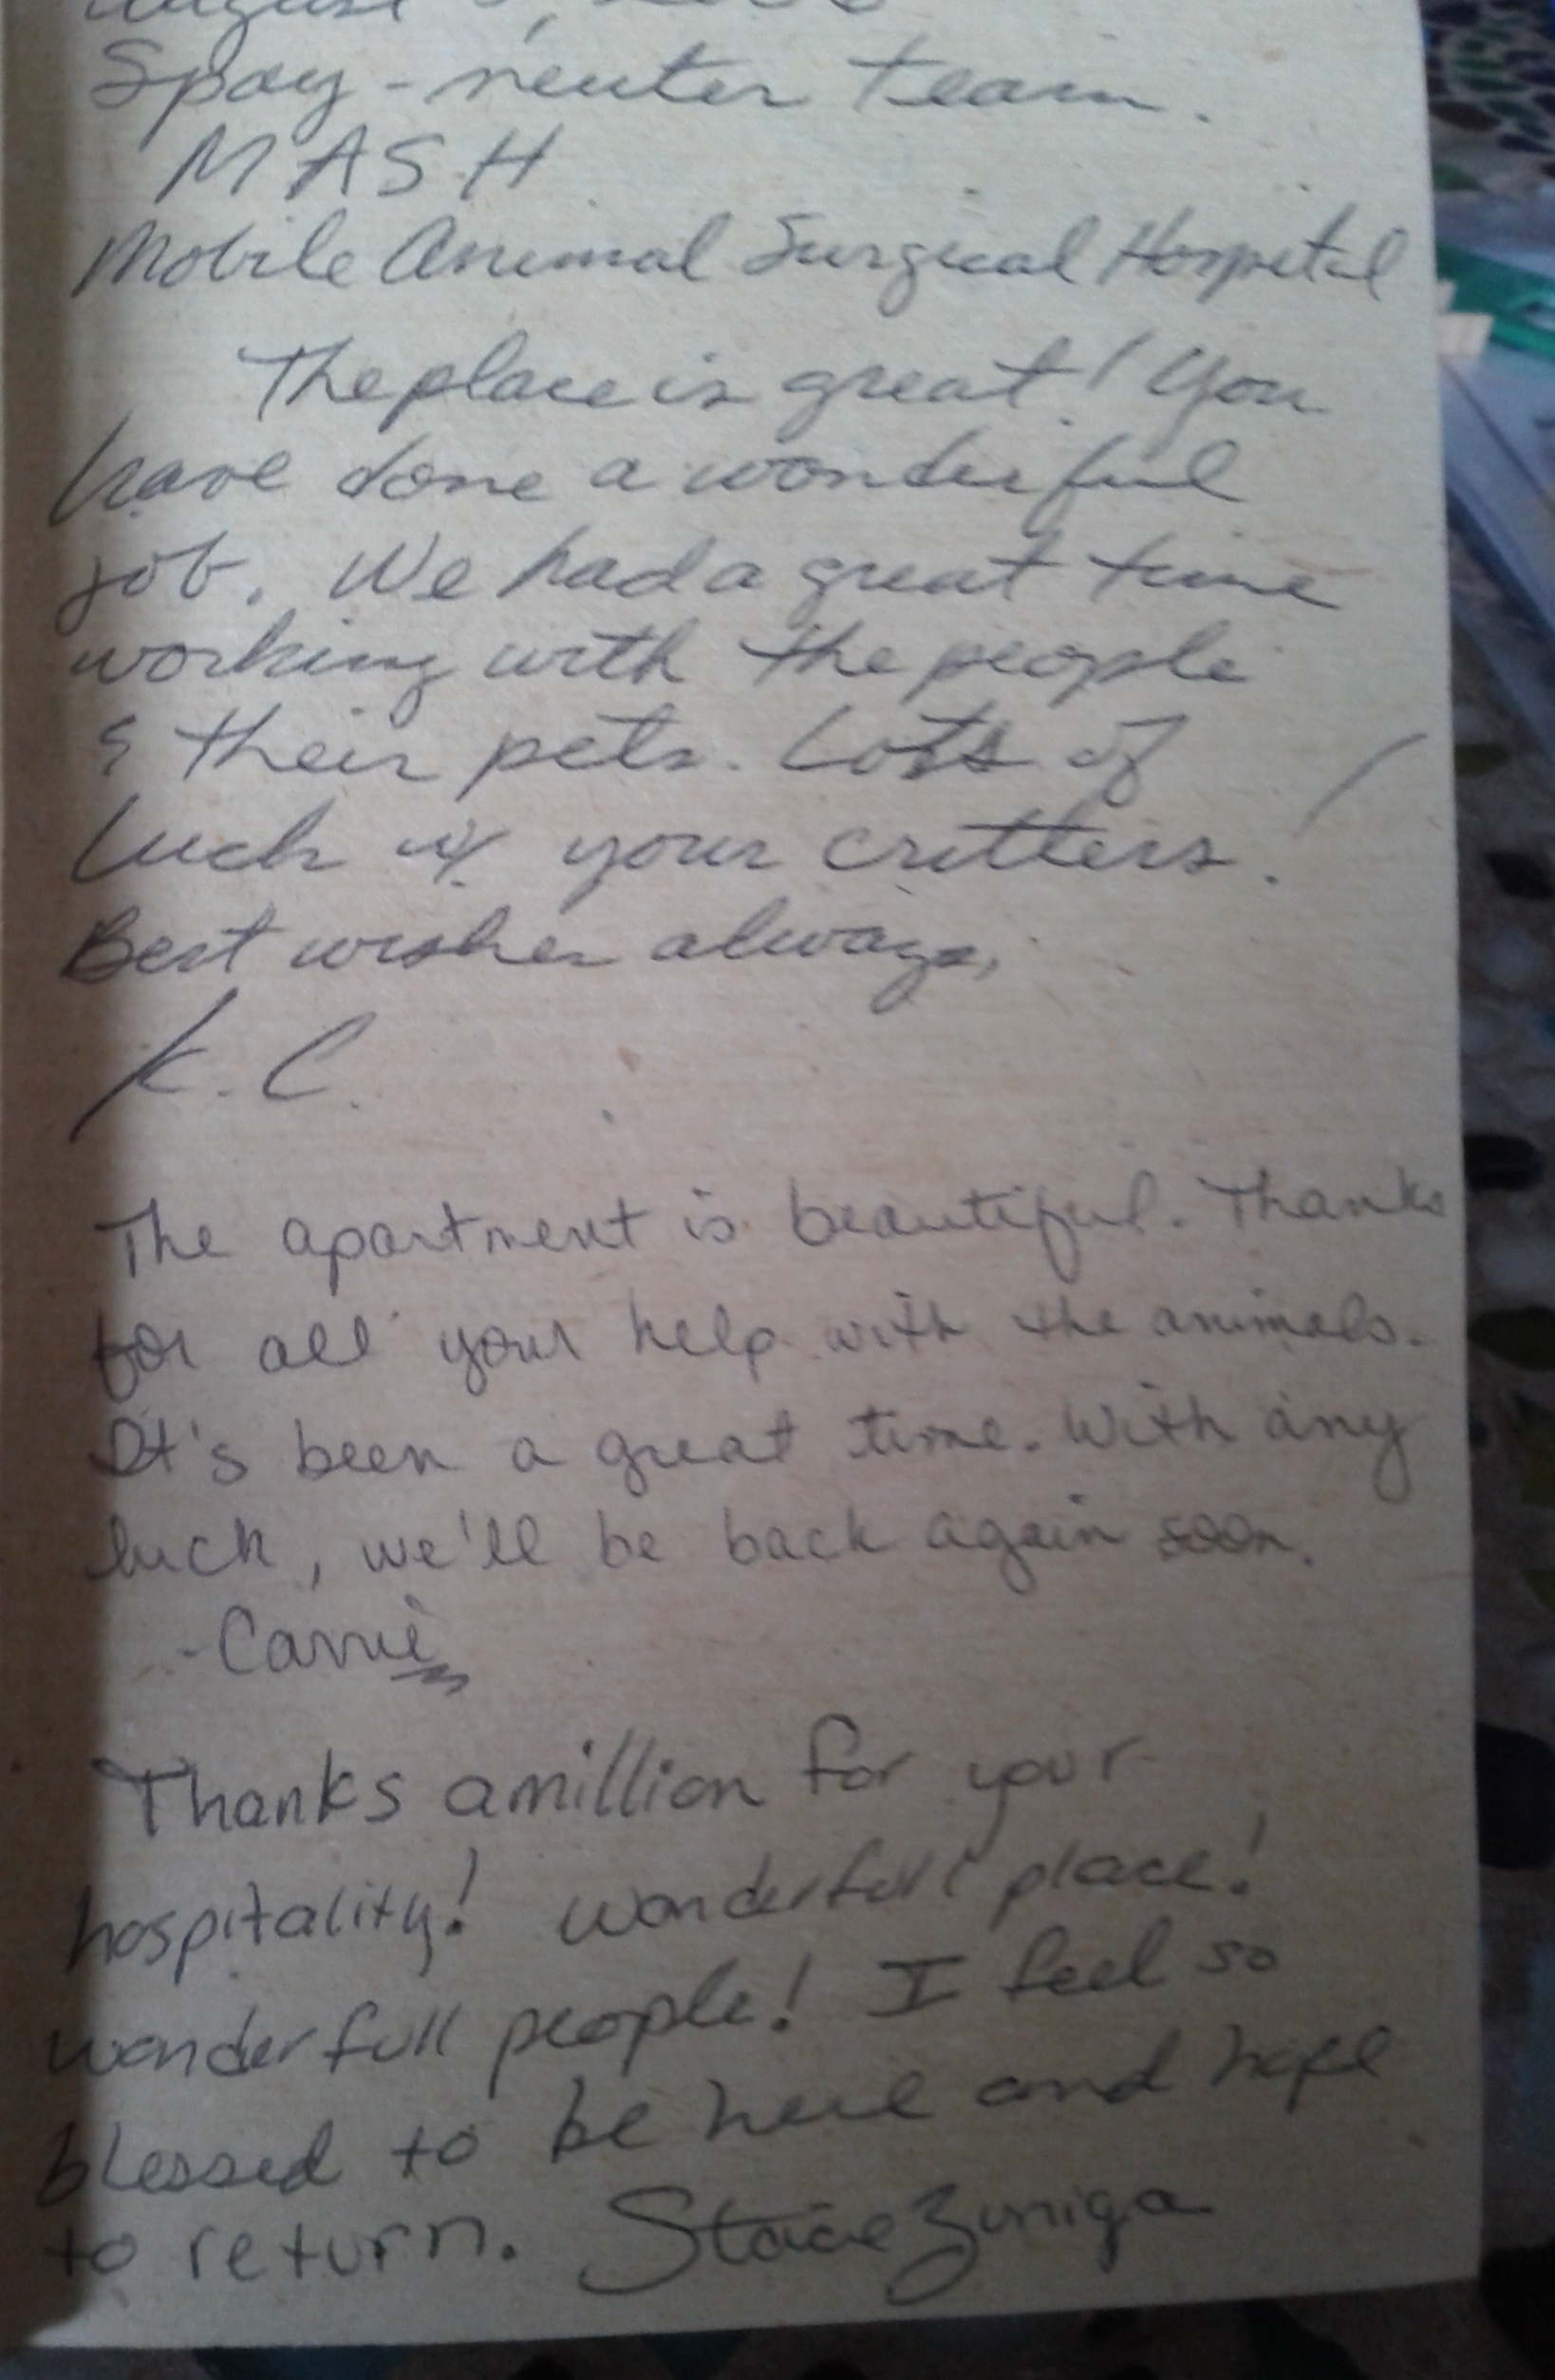 August
Spay-neuter team.
MASH
Mobile Animal Surgical Hospital
The place is great! You
have done a wonderful
job. We had a great time
working with the people
& their pets. Lots of
luck w/ your critters.
Best wishes always,
K.C.
The apartment is beautiful. Thanks
for all your help with the animals.
It's been a great time. With any
luck, we'll be back again soon.
-Carrie
Thanks a million for your
hospitality! wonderfull place!
wonderfull people! I feel so
blessed to be here and hope
to return. Stacie Zuniga